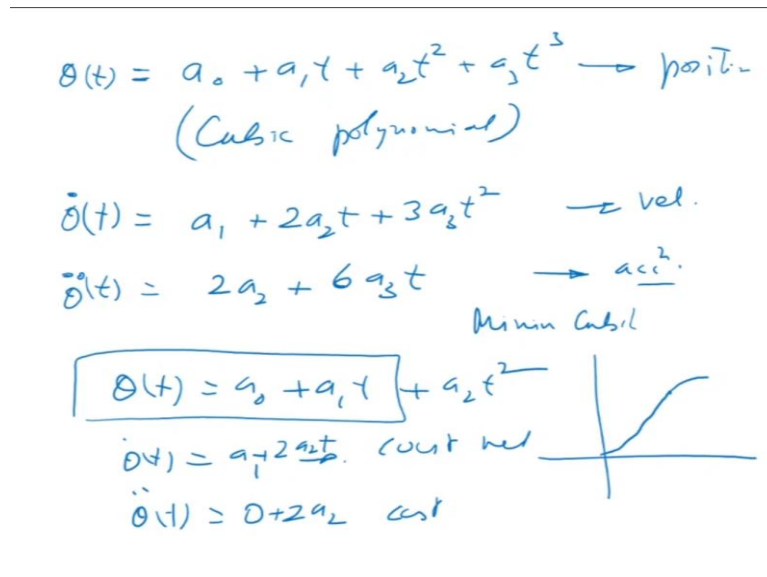 θ(t) = a₀ + a₁t + a₂t² + a₃t³ → positⁿ
(Cubic polynomial)
θ̇(t) = a₁ + 2a₂t + 3a₃t² → vel.
θ̈(t) = 2a₂ + 6a₃t → accⁿ.
Minim Cubic
θ(t) = a₀ + a₁t + a₂t²
θ̇(t) = a₁ + 2a₂t. const vel
θ̈(t) = 0 + 2a₂ cost